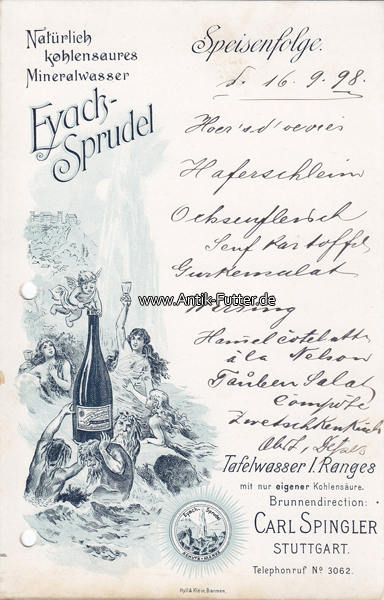 Natürlich
kohlensaures
Mineralwasser
Eyach-
Sprudel
Speisenfolge.
d. 16. 9. 98.
Hoer's d'oevres
Haferschleim
Ochsenfleisch
Senf Kartoffel
Gurkensalat
www.Antik-Futter.de
Wirsing
Hamelcotelatts
à la Nelson
Tauben Salat
Compote
Zwetschkenkuch
Obst,
Tafelwasser I. Ranges
mit nur eigener Kohlensäure.
Brunnendirection:
CARL SPINGLER
STUTTGART.
Telephonruf No 3062.
Eyach Sprudel
SCHUTZ-MARKE